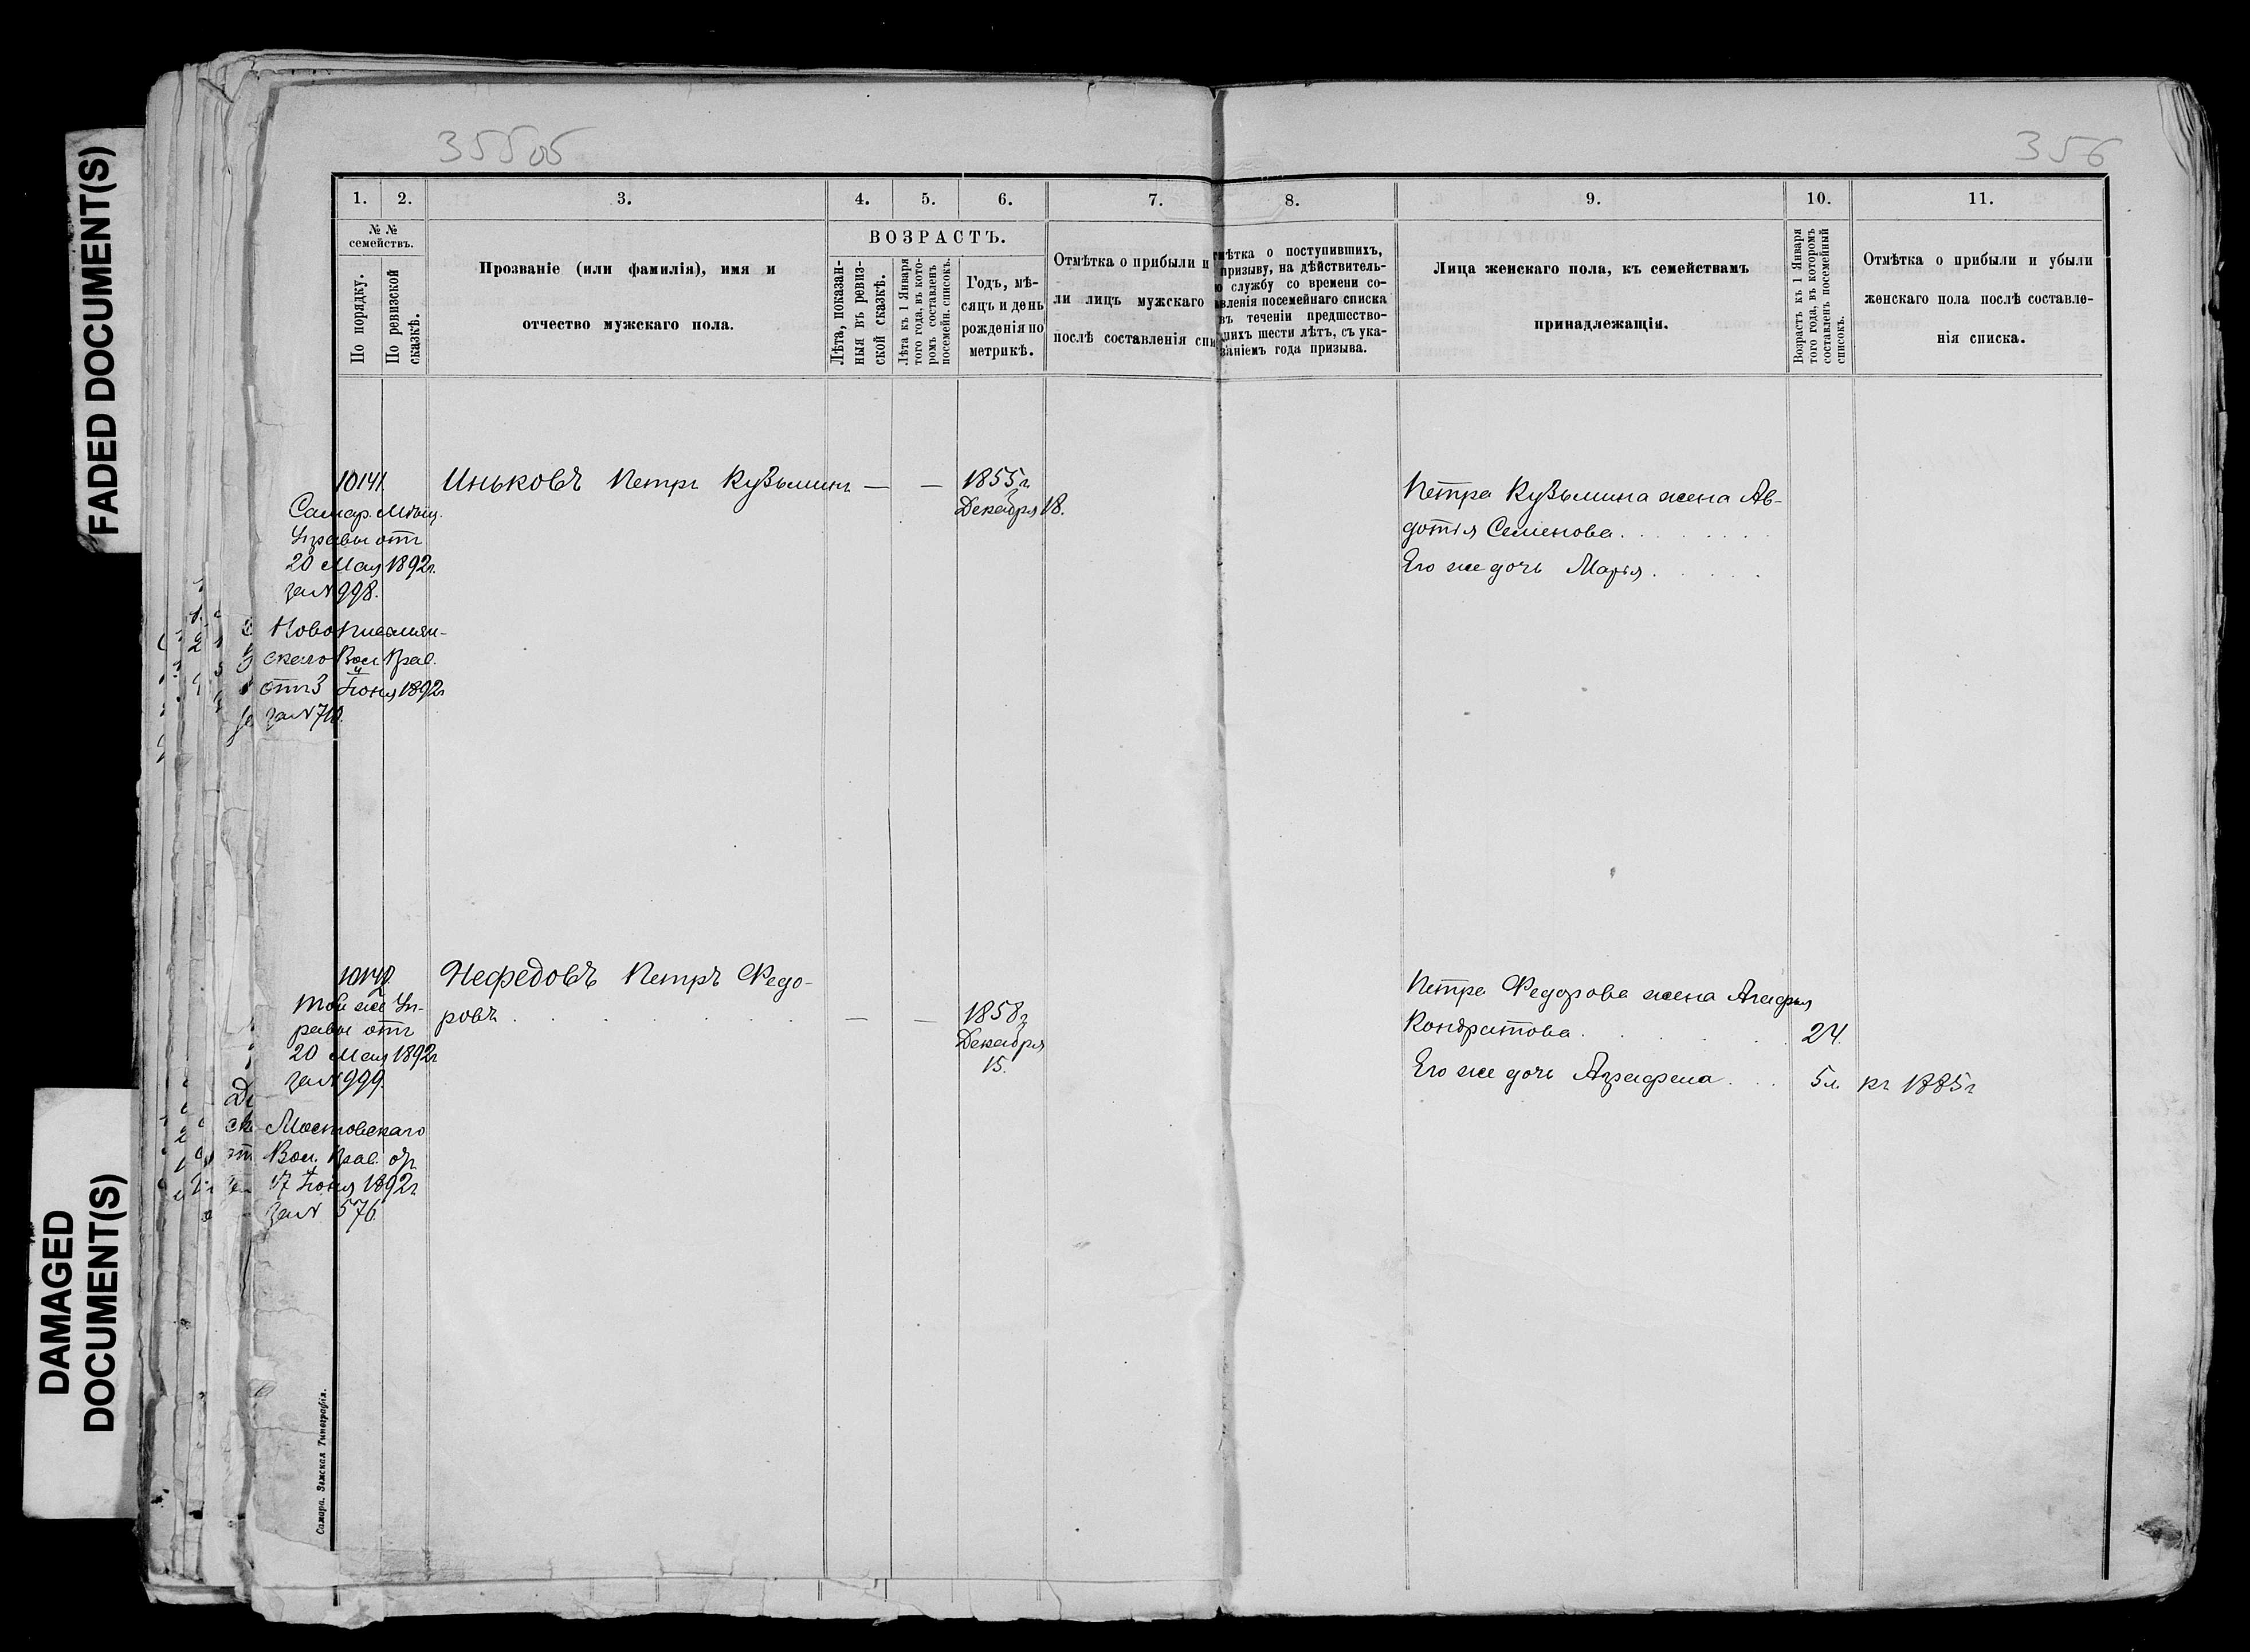 FADED DOCUMENT(S)
DAMAGED
DOCUMENT(S)
355об
356
1.
2.
3.
4.
5.
6.
7.
8.
9.
10.
11.
№ №
семействъ.
По порядку.
По ревизской
сказкѣ.
Прозваніе (или фамилія), имя и
отчество мужскаго пола.
ВОЗРАСТЪ.
Лѣта, показан-
ныя въ ревиз-
ской сказкѣ.
Лѣта къ 1 Января
того года, въ кото-
ромъ составленъ
посемейн. списокъ.
Годъ, мѣ-
сяцъ и день
рожденія по
метрикѣ.
Отмѣтка о прибыли и
ли лицъ мужскаго
послѣ составленія спи
мѣтка о поступившихъ,
призыву, на дѣйствитель-
ю службу со времени со-
авленія посемейнаго списка
въ теченіи предшество-
шихъ шести лѣтъ, съ ука-
заніемъ года призыва.
Лица женскаго пола, къ семействамъ
принадлежащія.
Возрастъ къ 1 Января
того года, въ которомъ
составленъ посемейный
списокъ.
Отмѣтка о прибыли и убыли
женскаго пола послѣ составле-
нія списка.
10141.
Самар. Мѣщ.
Управы отъ
20 Мая 1892г.
за № 998.
скаго Вол. Прав.
отъ 3 Іюня 1892г
за № 710.
Иньковъ Петръ Кузьминъ — —
1855г
Декабря 18.
Петра Кузьмина жена Ав-
дотія Семенова . . . . . . . .
Его же дочь Марья . . . . .
10142.
Той же Уп-
равы отъ
20 Мая 1892г
за № 999.
Мостовскаго
Вол. Прав. от
17 Іюня 1892г
за № 576.
Нефедовъ Петръ Федо-
ровъ . . . . . . . — —
1858г
Декабря
15.
Петра Федорова жена Агафья
Кондратова . . . . . 24.
Его же дочь Аграфена . . . 5л. къ 1885г
Самара. Земская Типографія.